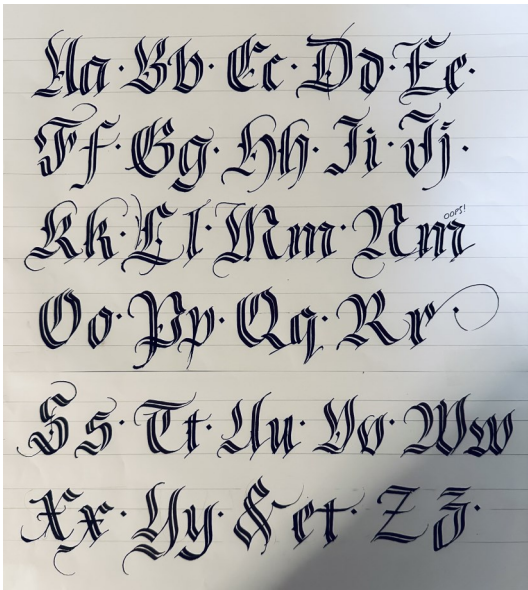 Aa · Bb · Cc · Dd · Ee ·
Ff · Gg · Hh · Ii · Jj ·
Kk · Ll · Mm · Nm OOPS!
Oo · Pp · Qq · Rr
Ss · Tt · Uu · Vv · Ww
Xx · Yy · & et · Zz ·